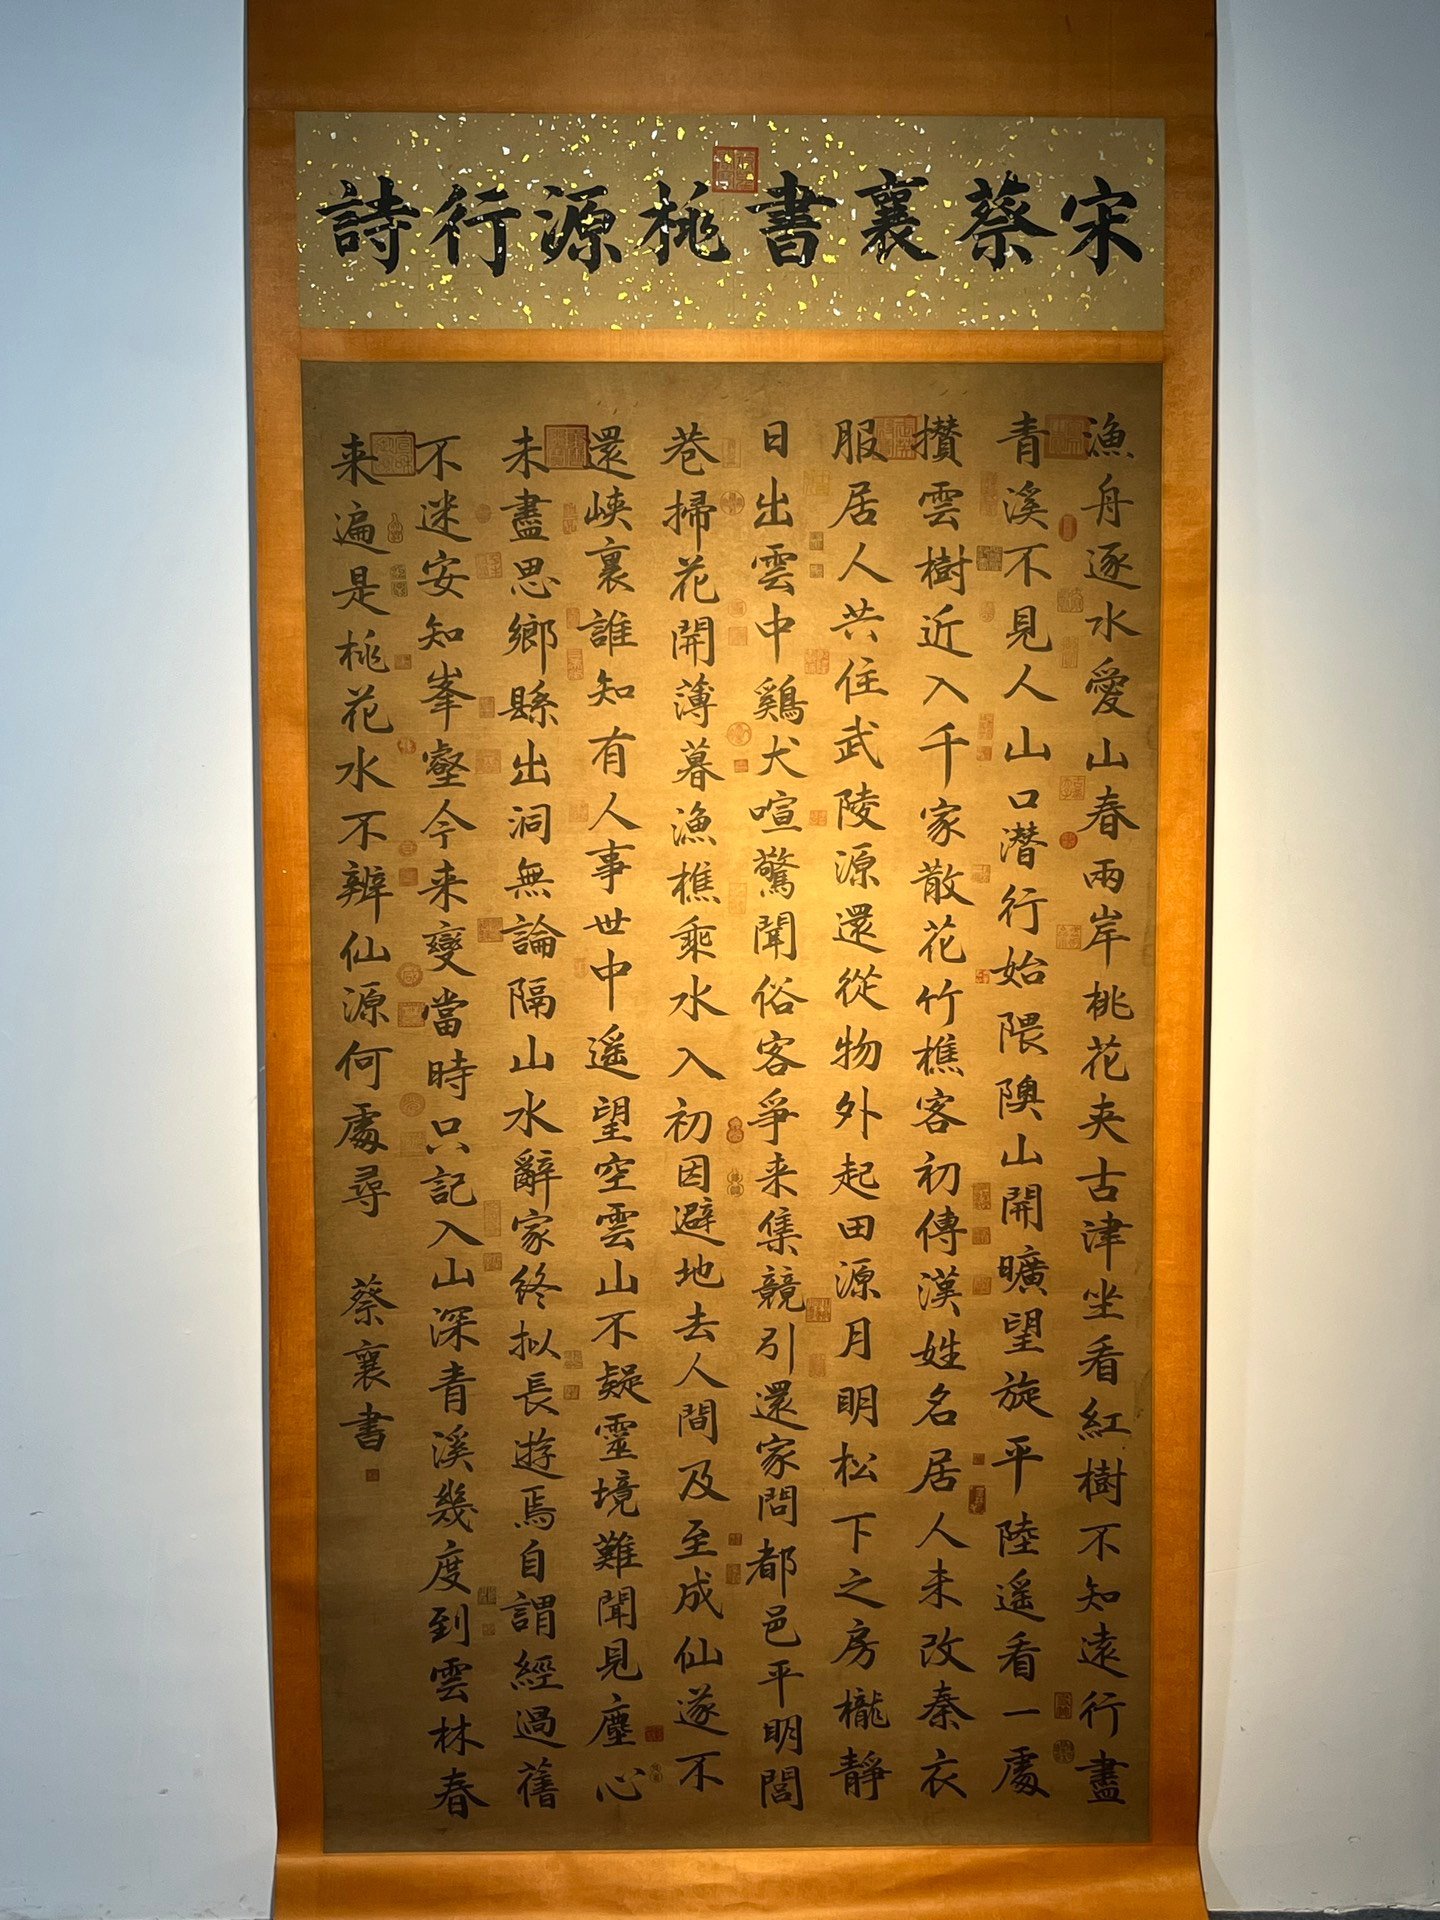 宋蔡襄書桃源行詩
漁舟逐水愛山春兩岸桃花夹古津坐看紅樹不知遠行盡
青溪不見人山口潜行始隈隩山開曠望旋平陸遥看一處
攅雲樹近入千家散花竹樵客初傳漢姓名居人未改秦衣
服居人共住武陵源還從物外起田源月明松下之房櫳静
日出雲中鷄犬喧驚聞俗客爭来集競引還家問都邑平明閭
巷掃花開薄暮漁樵乘水入初因避地去人間及至成仙遂不
還峽裏誰知有人事世中遥望空雲山不疑靈境難聞見塵心
未盡思鄉縣出洞無論隔山水辭家終拟長遊焉自謂經過舊
不迷安知峯壑今来變當時只記入山深青溪幾度到雲林春
来遍是桃花水不辨仙源何處尋 蔡襄書